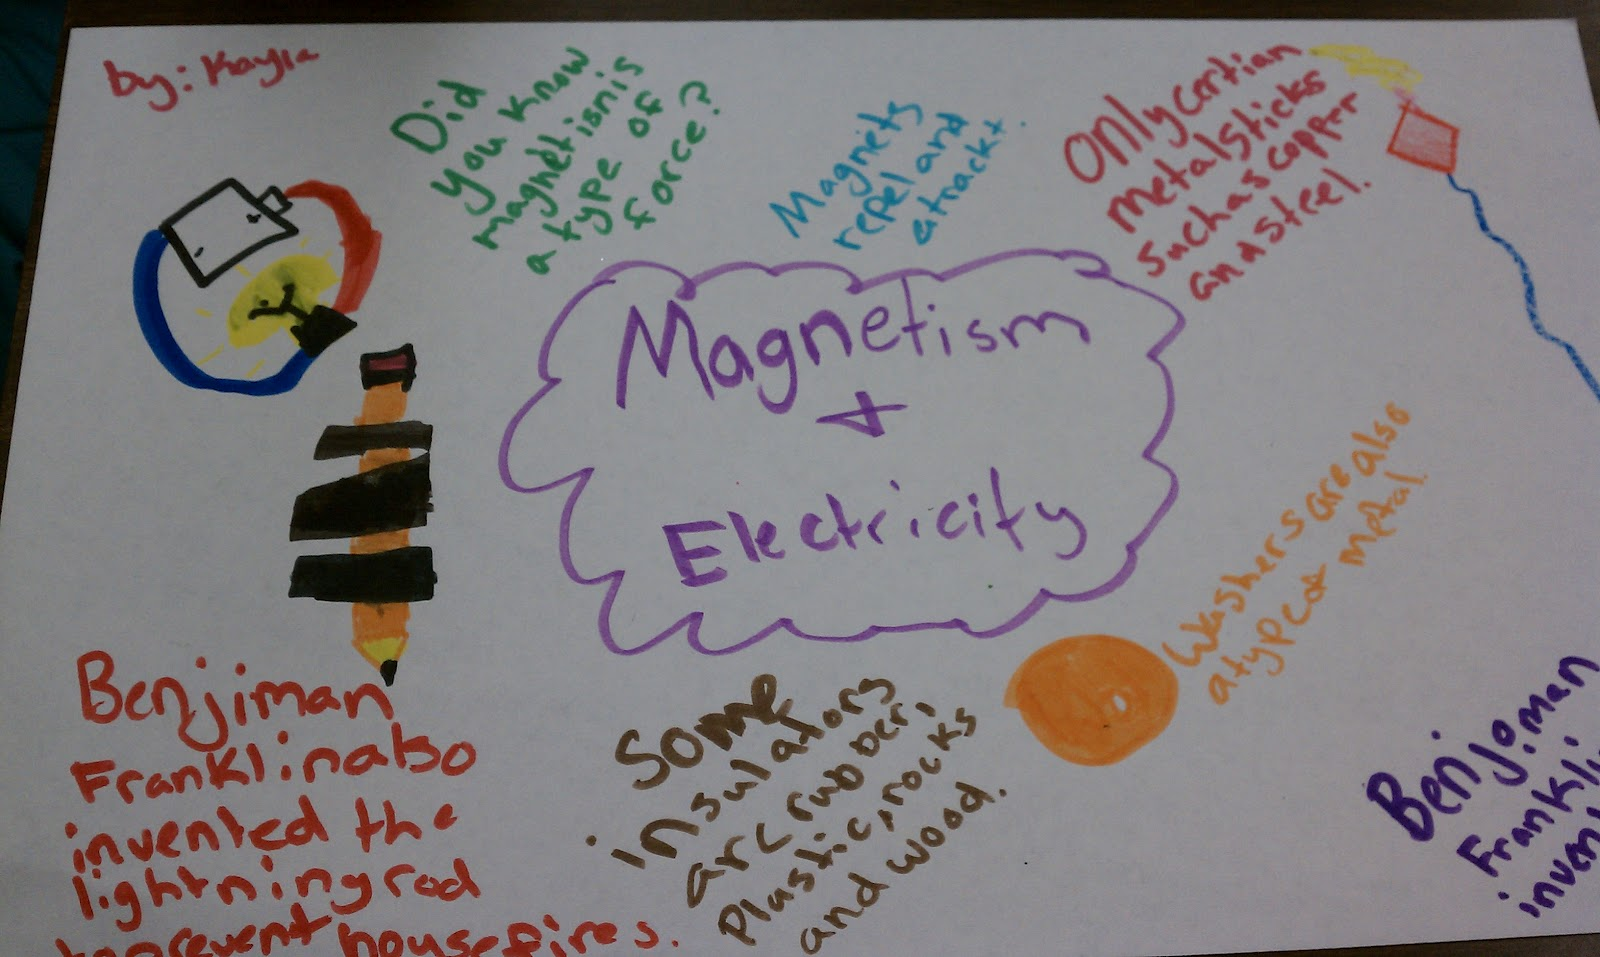 by: Kayla
Did
you know
magnetism is
a type of
force?
Magnets
repel and
atrackt.
Only certian
metal sticks
such as copper
and steel.
Magnetism
+
Electricity
Washers are also
a type of metal
Benjiman
Franklin also
invented the
lightning rod
to prevent housefires.
Some
insulators
are rubber,
Plastic, rocks
and wood.
Benjiman